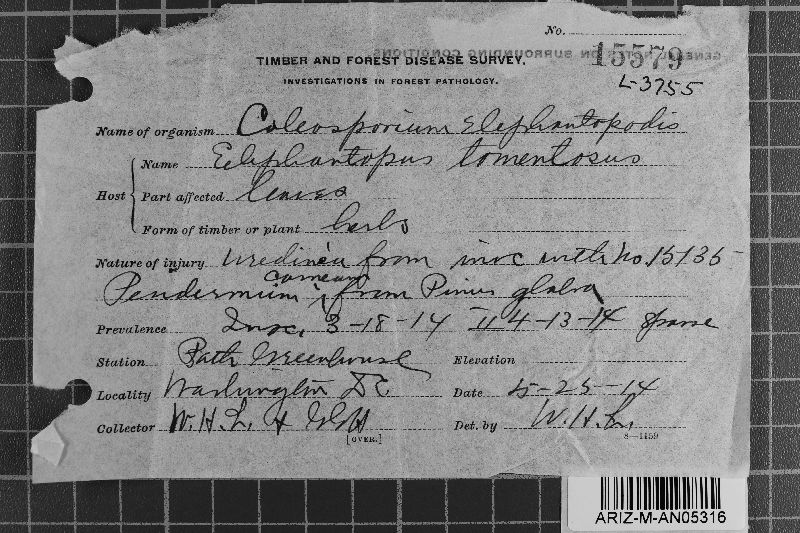 No.
15579
GENERAL NOTES ON SURROUNDING CONDITIONS
TIMBER AND FOREST DISEASE SURVEY.
INVESTIGATIONS IN FOREST PATHOLOGY.
L-3755
Name of organism Coleosporium Elephantopodis
Host
Name Elephantopus tomentosus
Part affected leaves
Form of timber or plant herb
Nature of injury uredinia from inoc with No. 15135
carneum
Peridermium from Pinus glabra
Prevalence Inoc. 3-18-14 II 4-13-14 sparse
Station Path Greenhouse Elevation
Locality Washington DC Date 5-25-14
Collector W.H.L. & Det. by W.H.L.
[OVER.]
8—1159
ARIZ-M-AN05316